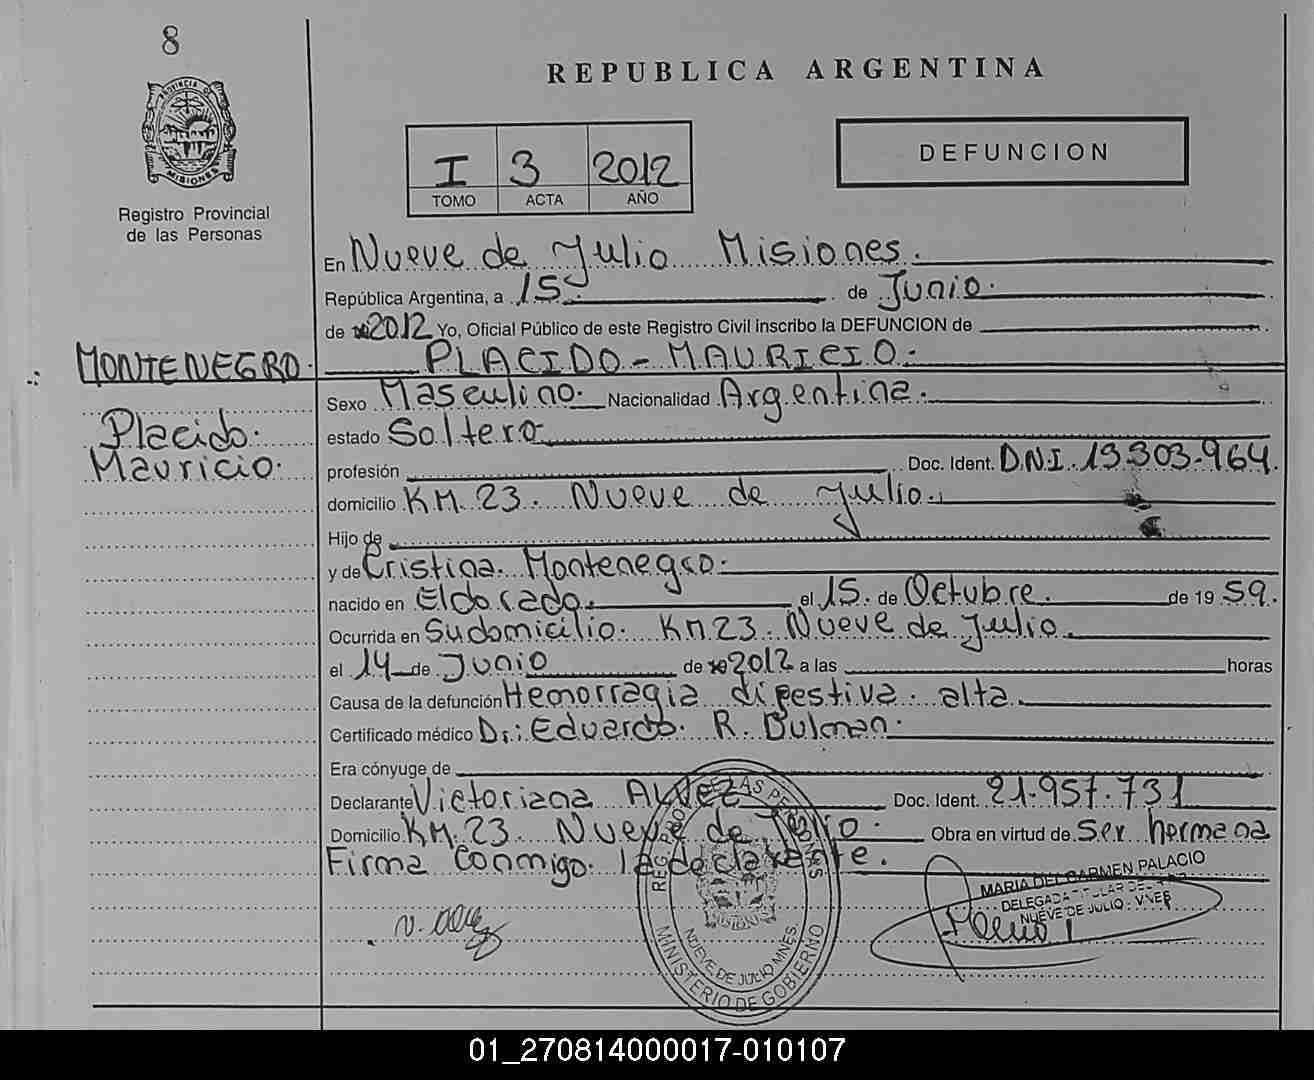 8
REPUBLICA ARGENTINA
PROVINCIA DE
MISIONES
Registro Provincial
de las Personas
I 3 2012
TOMO ACTA AÑO
DEFUNCION
En Nueve de Julio Misiones.
República Argentina, a 15 de Junio.
de 2012 Yo, Oficial Público de este Registro Civil inscribo la DEFUNCION de
MONTENEGRO. PLACIDO - MAURICIO.
Placido.
Mauricio.
Sexo Masculino. Nacionalidad Argentina.
estado Soltero
profesión Doc. Ident. D.N.I. 13.303.964.
domicilio KM. 23. Nueve de Julio.
Hijo de
y de Cristina. Montenegro.
nacido en Eldorado. el 15. de Octubre. de 19 59.
Ocurrida en Su domicilio. KM 23. Nueve de Julio.
el 14 de Junio de 2012 a las horas
Causa de la defunción Hemorragia digestiva. alta.
Certificado médico Dr.: Eduardo. R. Dulman.
Era cónyuge de
Declarante Victoriana Alvez Doc. Ident. 21.957.731
Domicilio KM. 23. Nueve de Julio. Obra en virtud de Ser hermana
Firma Conmigo. la declarante.
REG. PROV. DE LAS PERSONAS
NUEVE DE JULIO MNES.
MINISTERIO DE GOBIERNO
MARIA DEL CARMEN PALACIO
DELEGADA TITULAR
NUEVE DE JULIO - MNES
01_270814000017-010107